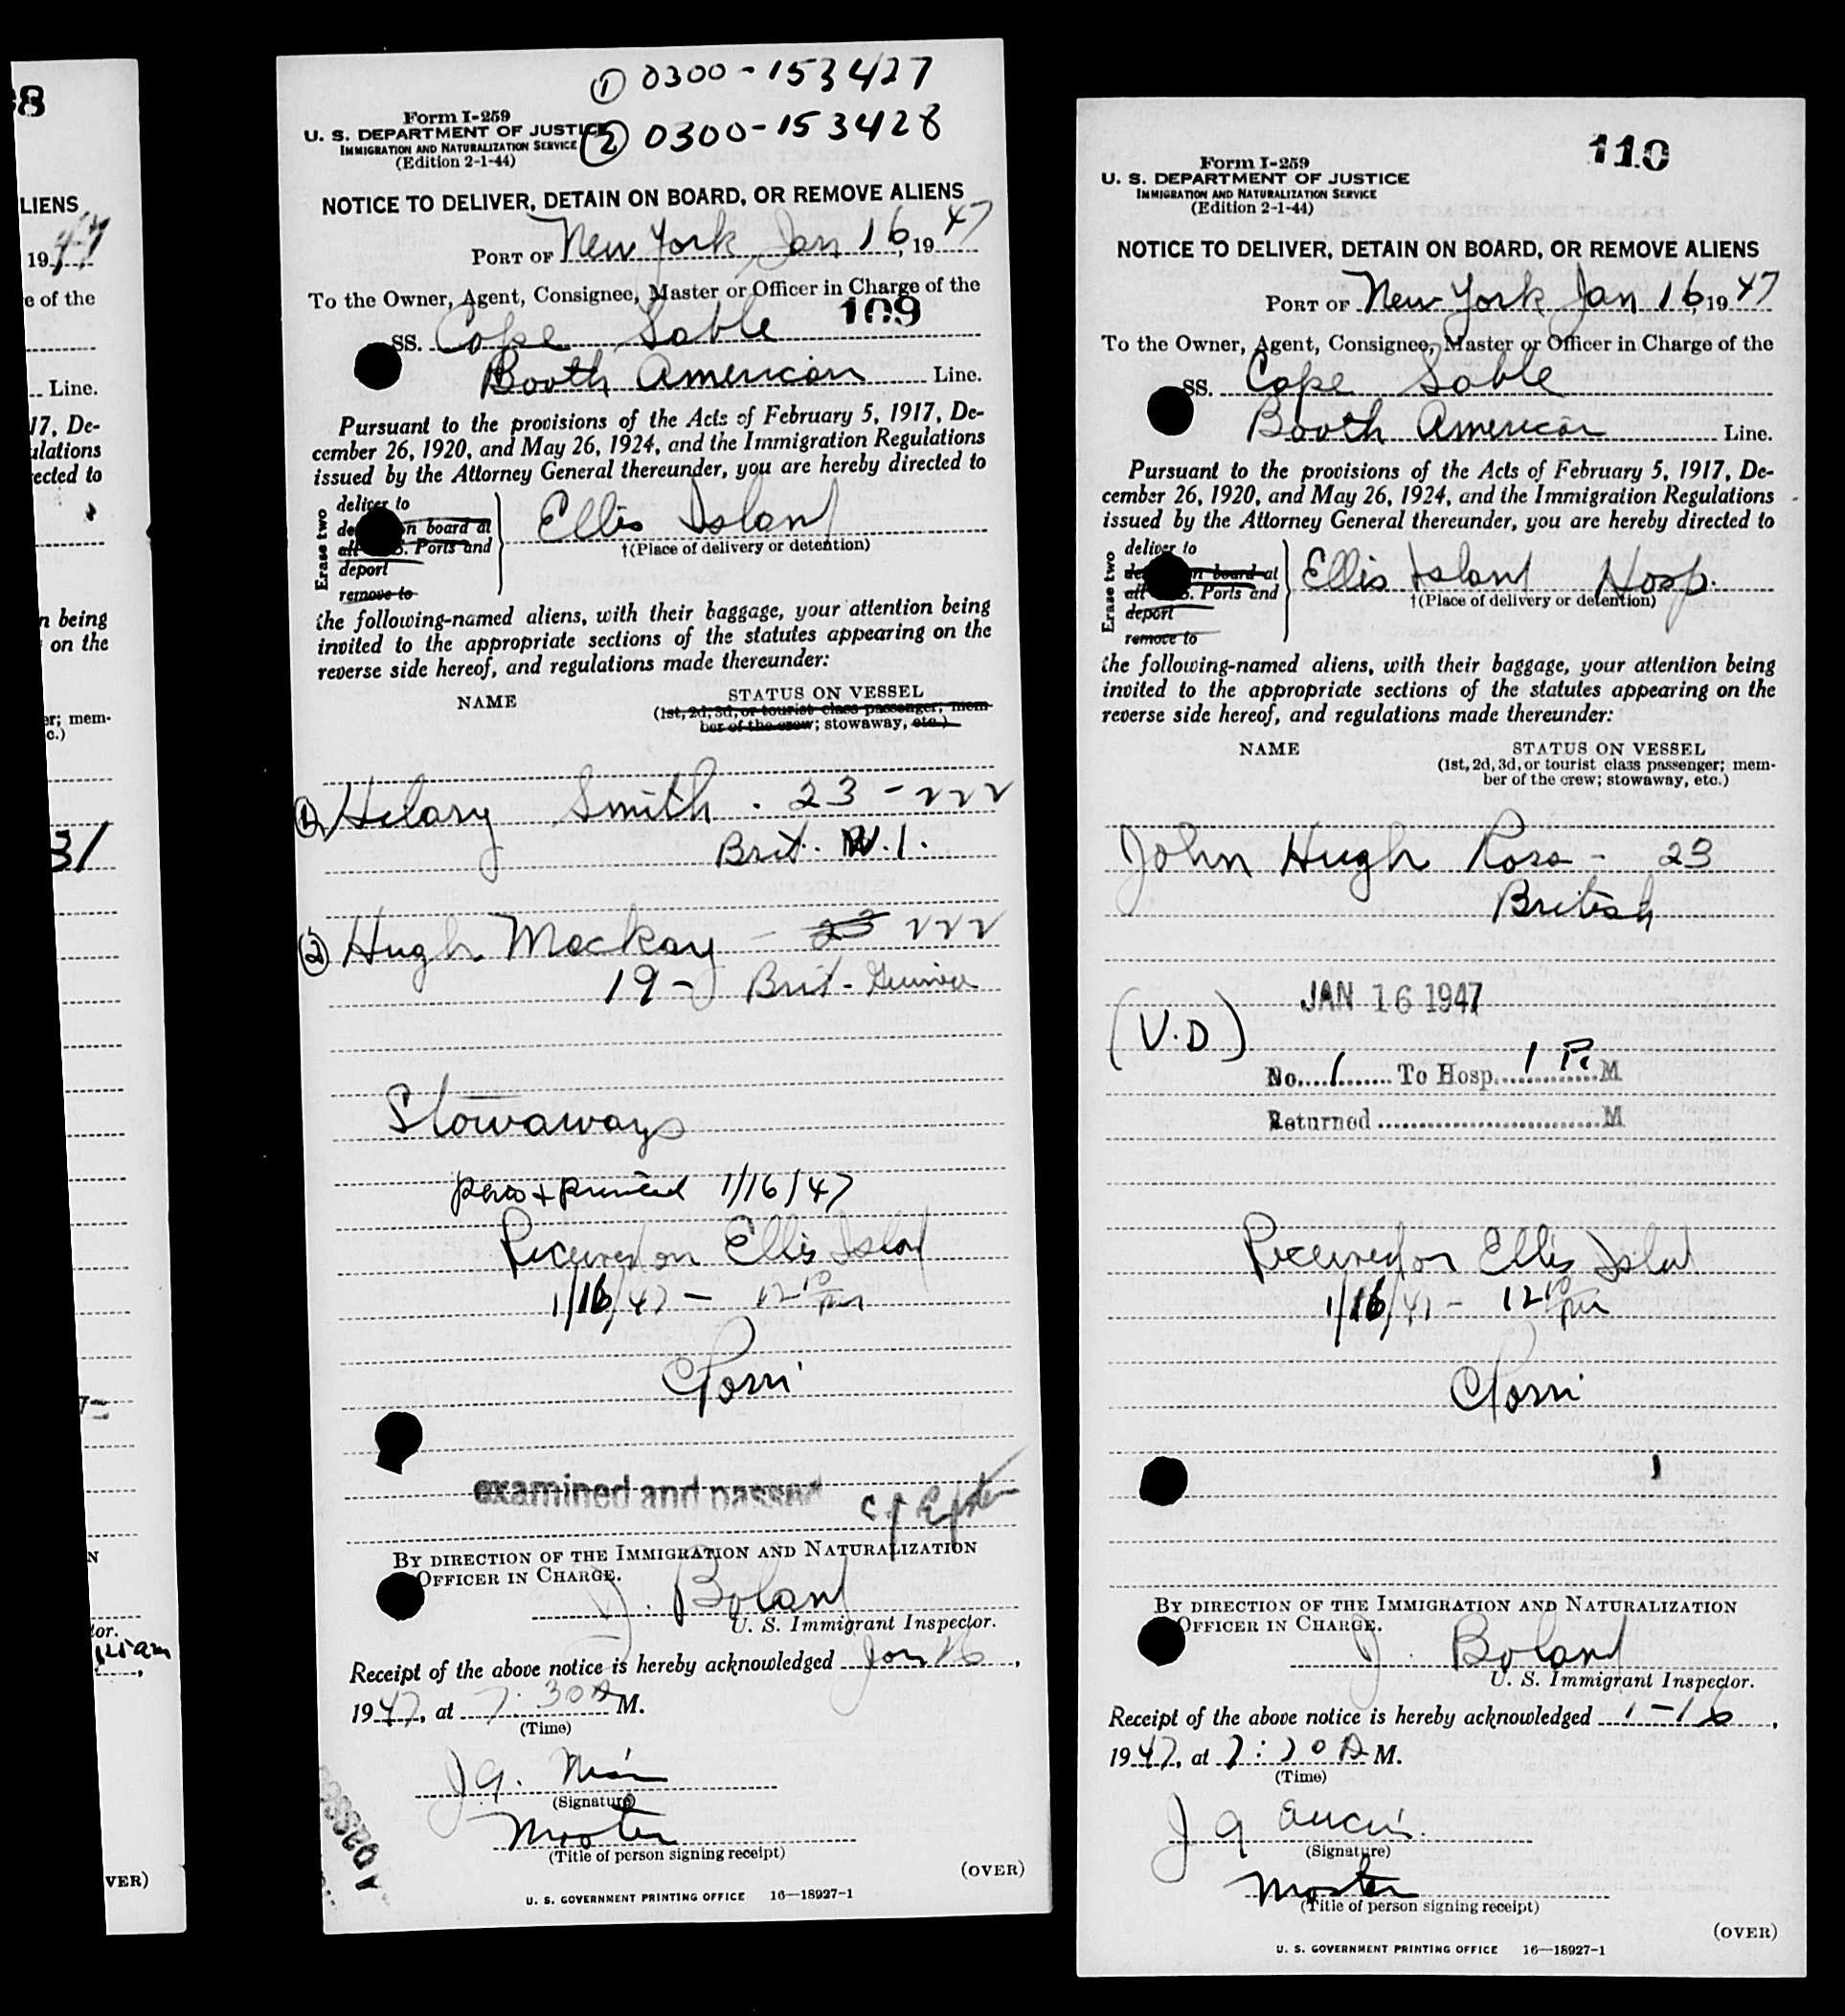 8
LIENS
1947
e of the
Line.
17, De-
ulations
ected to
n being
on the
er; mem-
c.)
31
7-
N
tor.
VER)
① 0300-153427
② 0300-153428
Form I-259
U. S. DEPARTMENT OF JUSTICE
IMMIGRATION AND NATURALIZATION SERVICE
(Edition 2-1-44)
NOTICE TO DELIVER, DETAIN ON BOARD, OR REMOVE ALIENS
PORT OF New York, Jan 16, 1947
To the Owner, Agent, Consignee, Master or Officer in Charge of the
109
SS. Cape Sable
Booth American Line.
Pursuant to the provisions of the Acts of February 5, 1917, De-
cember 26, 1920, and May 26, 1924, and the Immigration Regulations
issued by the Attorney General thereunder, you are hereby directed to
Erase two
deliver to
de n board at
all S. Ports and
deport
remove to
Ellis Island
†(Place of delivery or detention)
the following-named aliens, with their baggage, your attention being
invited to the appropriate sections of the statutes appearing on the
reverse side hereof, and regulations made thereunder:
NAME STATUS ON VESSEL
(1st, 2d, 3d, or tourist class passenger; mem-
ber of the crew; stowaway, etc.)
① Hilary Smith . 23 -
Brit. W.I.
② Hugh Mackay - 23
19 - Brit - Guinea
Stowaways
1/16/47
Received on Ellis Island
1/16/47 - 12 10 pm
examined and passed
BY DIRECTION OF THE IMMIGRATION AND NATURALIZATION
OFFICER IN CHARGE.
J. Boland
U. S. Immigrant Inspector.
Receipt of the above notice is hereby acknowledged Jan 16,
1947, at 7:30 A M.
(Time)
J.A.
(Signature)
Master
(Title of person signing receipt)
passed
(OVER)
U. S. GOVERNMENT PRINTING OFFICE 16—18927-1
110
Form I-259
U. S. DEPARTMENT OF JUSTICE
IMMIGRATION AND NATURALIZATION SERVICE
(Edition 2-1-44)
NOTICE TO DELIVER, DETAIN ON BOARD, OR REMOVE ALIENS
PORT OF New York Jan 16, 1947
To the Owner, Agent, Consignee, Master or Officer in Charge of the
SS. Cape Sable
Booth American Line.
Pursuant to the provisions of the Acts of February 5, 1917, De-
cember 26, 1920, and May 26, 1924, and the Immigration Regulations
issued by the Attorney General thereunder, you are hereby directed to
Erase two
deliver to
de n board at
all S. Ports and
deport
remove to
Ellis Island Hosp.
†(Place of delivery or detention)
the following-named aliens, with their baggage, your attention being
invited to the appropriate sections of the statutes appearing on the
reverse side hereof, and regulations made thereunder:
NAME STATUS ON VESSEL
(1st, 2d, 3d, or tourist class passenger; mem-
ber of the crew; stowaway, etc.)
John Hugh Ross - 23
British
JAN 16 1947
(V.D)
No. 1 To Hosp. 1 P. M
Returned M
Received on Ellis Island
1/16/47 - 12 10 pm
BY DIRECTION OF THE IMMIGRATION AND NATURALIZATION
OFFICER IN CHARGE.
J. Boland
U. S. Immigrant Inspector.
Receipt of the above notice is hereby acknowledged 1-16,
1947, at 7:30 A M.
(Time)
J A
(Signature)
Master
(Title of person signing receipt)
(OVER)
U. S. GOVERNMENT PRINTING OFFICE 16—18927-1